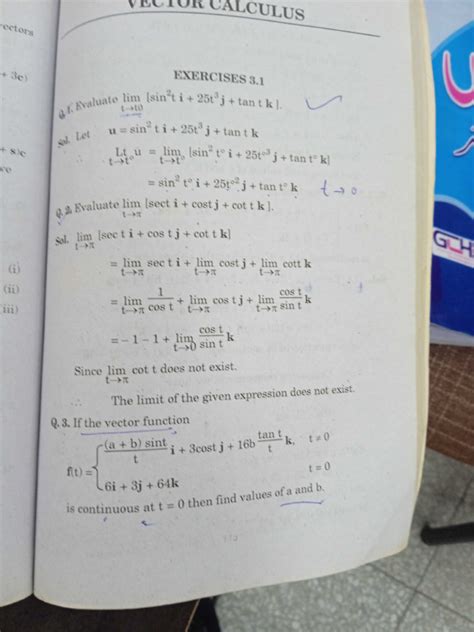 VECTOR CALCULUS
EXERCISES 3.1
Q.1. Evaluate lim t→t0 [sin²t i + 25t³ j + tan t k].
Sol. Let u = sin² t i + 25t³ j + tan t k
∴ Lt t→t° u = lim t→t° [sin² t° i + 25t°³ j + tan t° k]
= sin² t° i + 25t°² j + tan t° k t → 0
Q.2. Evaluate lim t→π [sect i + cost j + cot t k].
Sol. lim t→π [sec t i + cos t j + cot t k]
= lim t→π sec t i + lim t→π cost j + lim t→π cott k
= lim t→π 1/cos t + lim t→π cos t j + lim t→π cos t/sin t k
= – 1 – 1 + lim t→0 cos t/sin t k
Since lim t→π cot t does not exist.
∴ The limit of the given expression does not exist.
Q.3. If the vector function
f(t) = { (a + b) sint/t i + 3cost j + 16b tan t/t k, t ≠ 0
6i + 3j + 64k t = 0
is continuous at t = 0 then find values of a and b.
ectors
+ 3c)
(i)
(ii)
(iii)